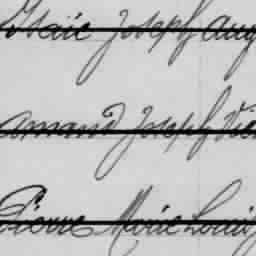 Isaïe Joseph Aug
Amand Joseph Vic
Pierre Marie Louis